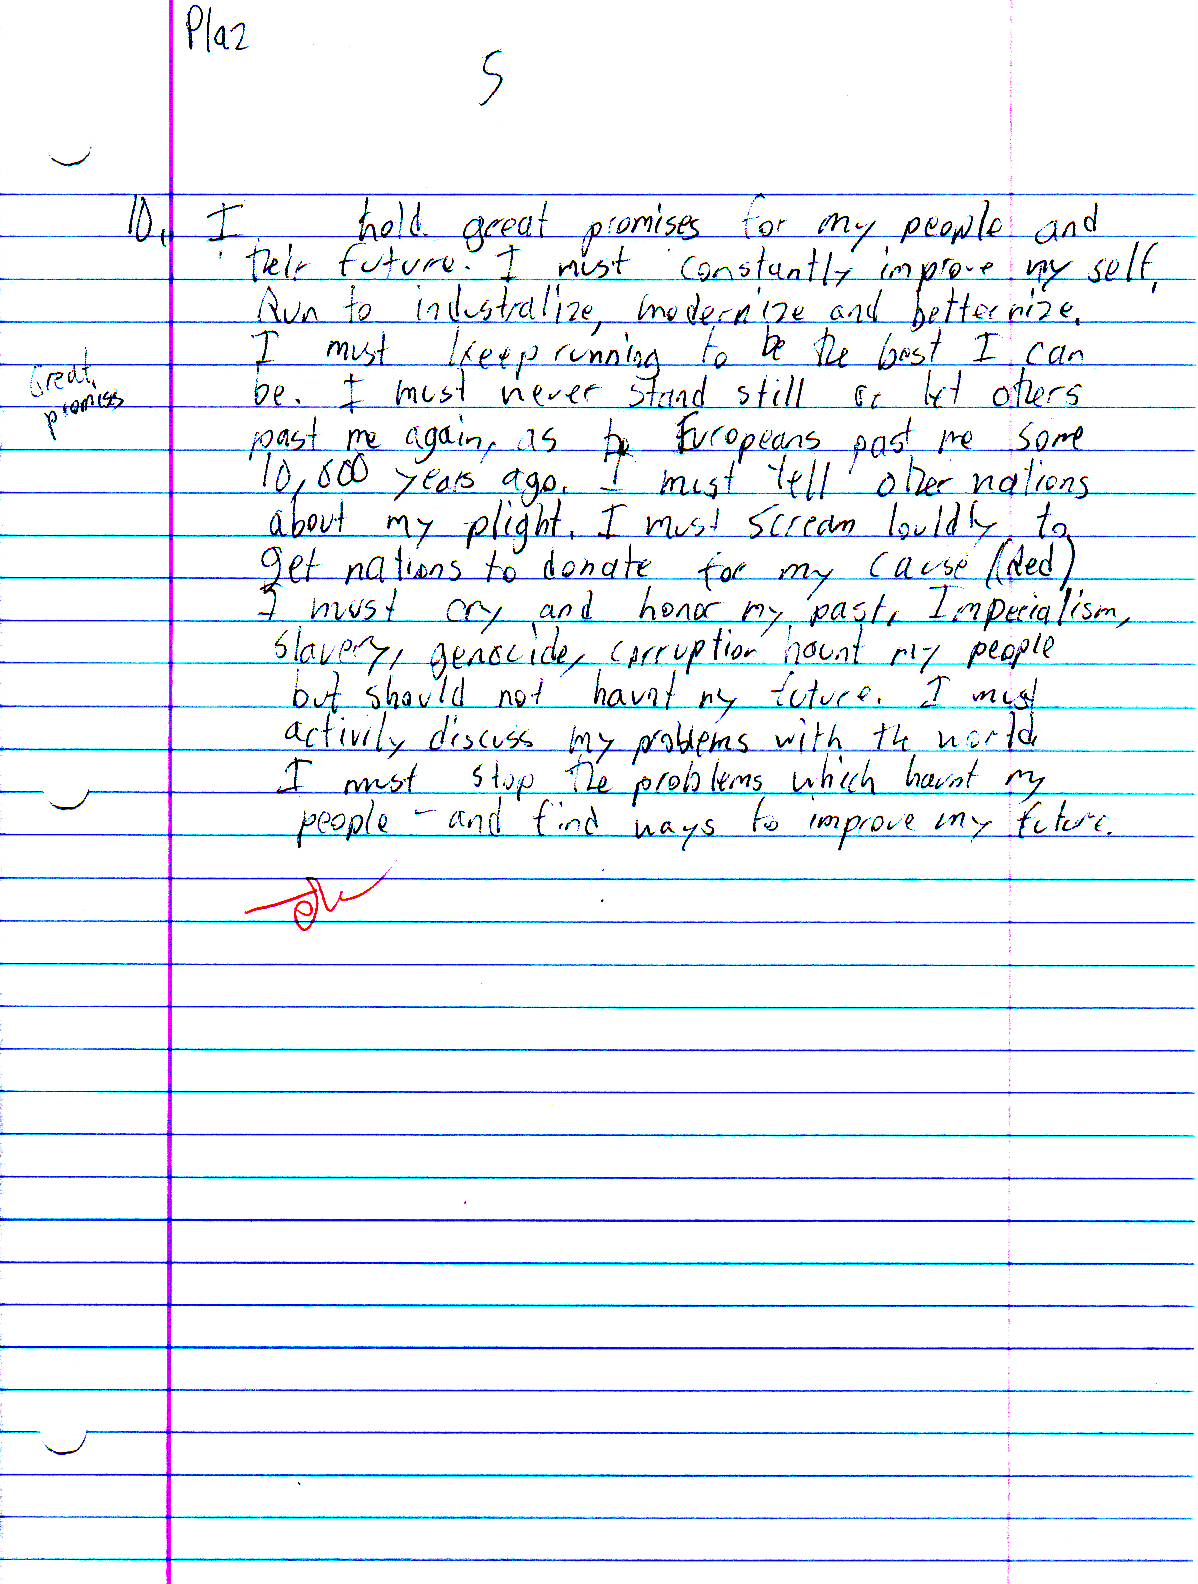 Plaz
5
10. I hold great promises for my people and
their future. I must constantly improve my self.
Run to industralize, modernize and betternize.
I must keep running to be the best I can
Great promises
be. I must never stand still or let others
past me again, as Europeans past me some
10,000 years ago. I must tell other nations
about my plight. I must scream louldly to
get nations to donate for my cause (Red)
I must cry and honor my past. Imperialism,
slavery, genocide, corruption haunt my people
but should not haunt my future. I must
activily discuss my problems with the world.
I must stop the problems which haunt my
people - and find ways to improve my future.